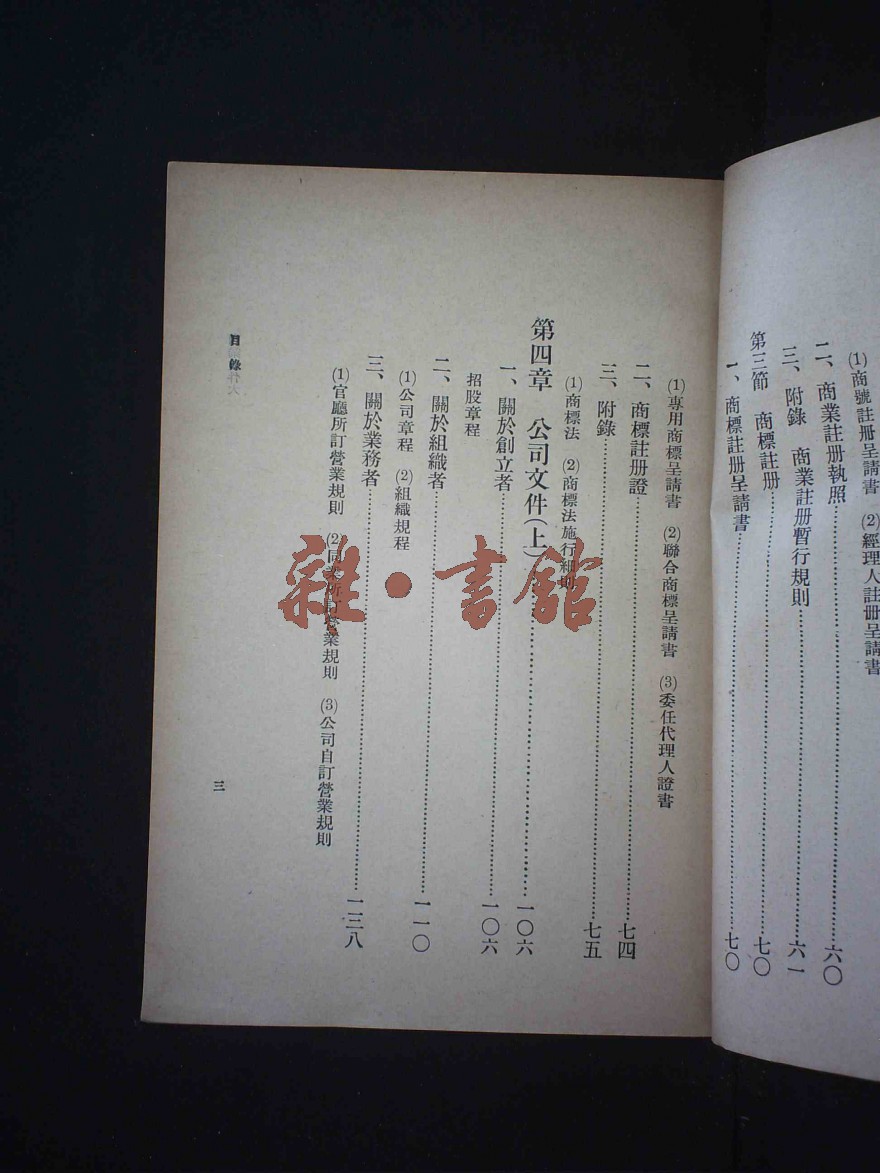 (1)商號註册呈請書　(2)經理人註册呈請書
二、商業註册執照……六〇
三、附錄　商業註册暫行規則……六一
第三節　商標註册……七〇
一、商標註册呈請書……七〇
(1)專用商標呈請書　(2)聯合商標呈請書　(3)委任代理人證書
二、商標註册證……七四
三、附錄……七五
(1)商標法　(2)商標法施行細則
第四章　公司文件(上)……一〇六
一、關於創立者……一〇六
招股章程
二、關於組織者……一一〇
(1)公司章程　(2)組織規程
三、關於業務者……一三八
(1)官廳所訂營業規則　(2)同業所訂營業規則　(3)公司自訂營業規則
目錄
三
雜·書館